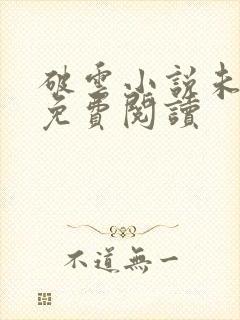 破雲小說未
免費閱讀
不道無一